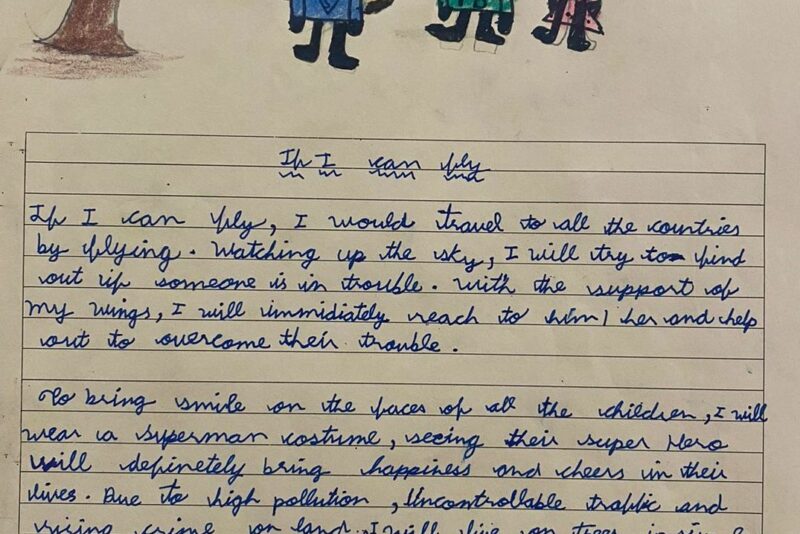 If I can fly
If I can fly, I would travel to all the countries
by flying. Watching up the sky, I will try to find
out if someone is in trouble. With the support of
my wings, I will immidiately reach to him/her and help
out to overcome their trouble.
To bring smile on the faces of all the children, I will
wear a superman costume, seeing their super Hero
will definetely bring happiness and cheers in their
lives. Due to high pollution, Uncontrollable traffic and
rising crime on land, I will live on trees